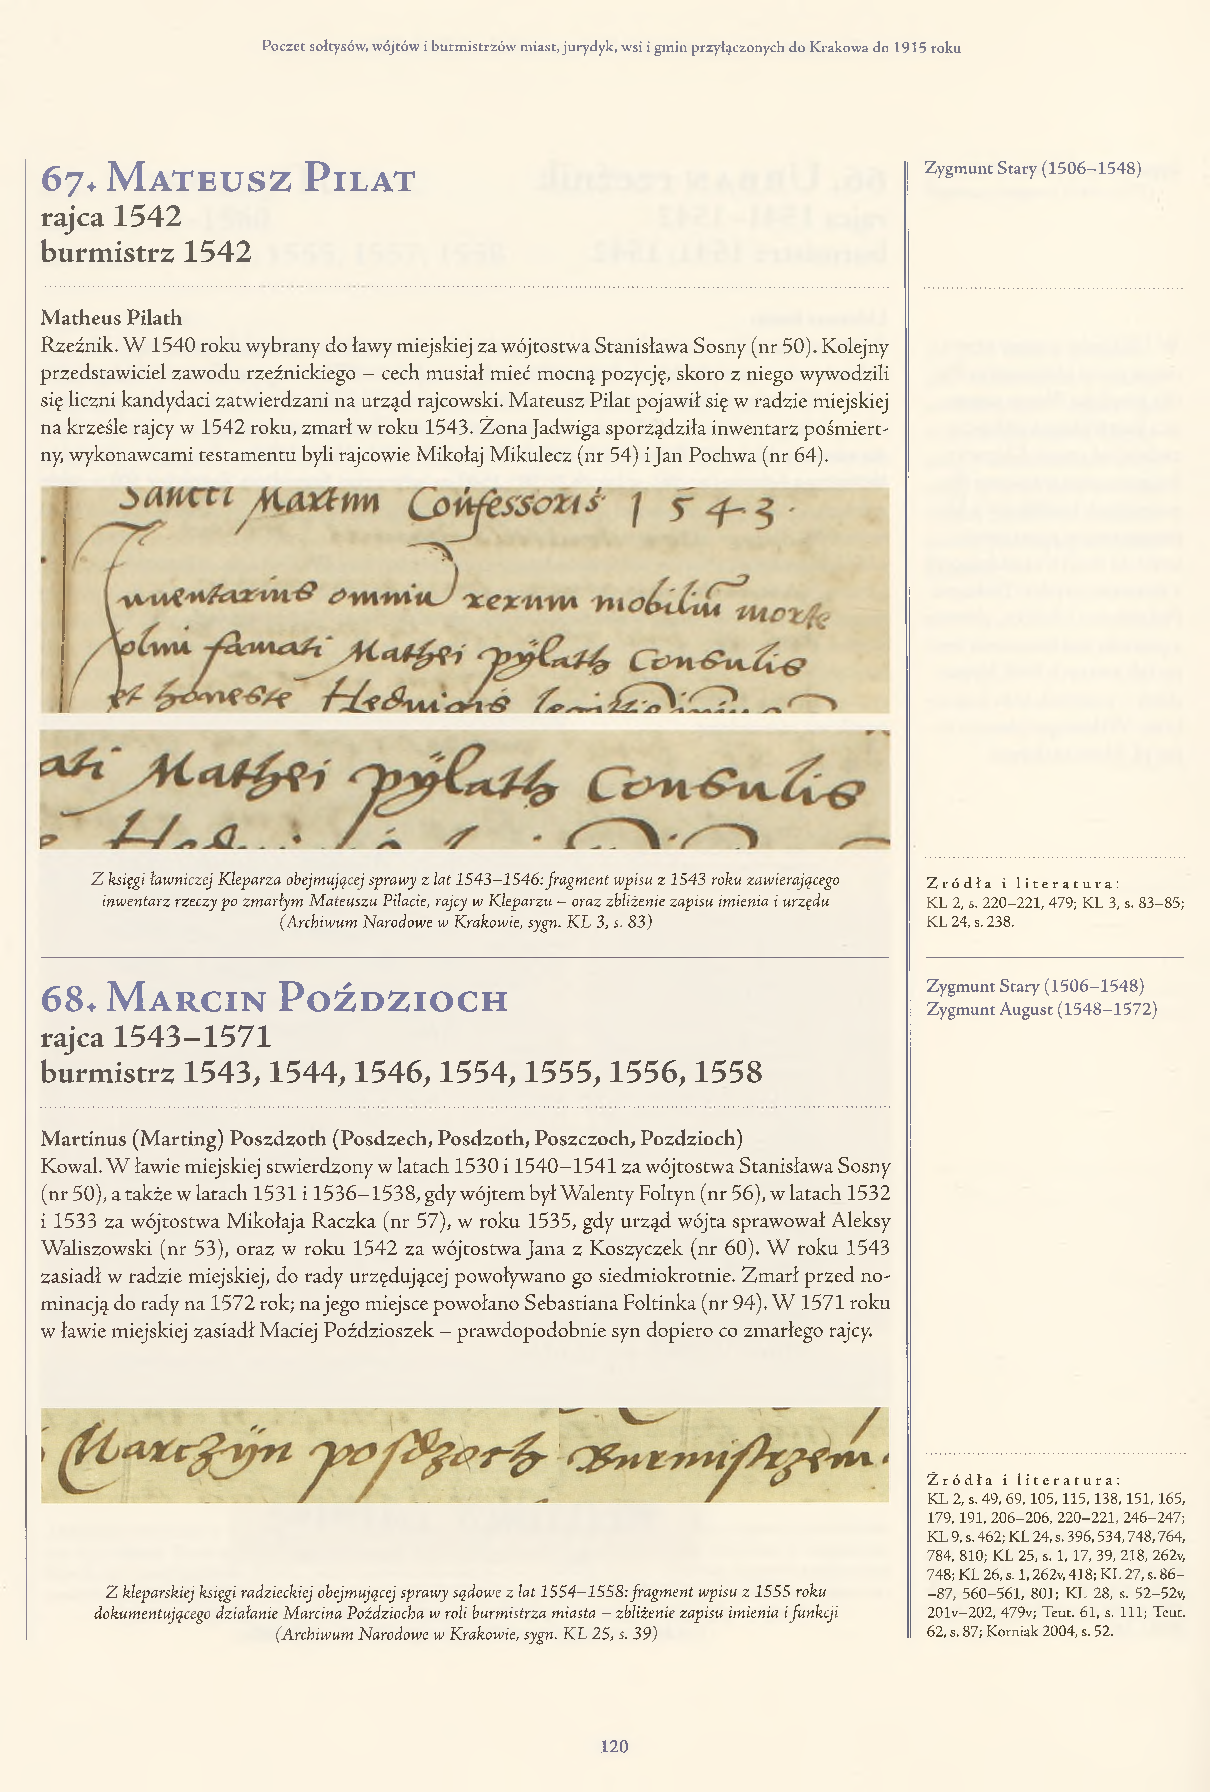 Poczet sołtysów, wójtów i burmistrzów miast, jurydyk, wsi i gmin przyłączonych do Krakowa do 1915 roku
67. Mateusz Pilat
rajca 1542
burmistrz 1542
Zygmunt Stary (1506–1548)
Matheus Pilath
Rzeźnik. W 1540 roku wybrany do ławy miejskiej za wójtostwa Stanisława Sosny (nr 50). Kolejny
przedstawiciel zawodu rzeźnickiego – cech musiał mieć mocną pozycję, skoro z niego wywodzili
się liczni kandydaci zatwierdzani na urząd rajcowski. Mateusz Pilat pojawił się w radzie miejskiej
na krześle rajcy w 1542 roku, zmarł w roku 1543. Żona Jadwiga sporządziła inwentarz pośmiert-
ny, wykonawcami testamentu byli rajcowie Mikołaj Mikulecz (nr 54) i Jan Pochwa (nr 64).
Sancti Martini Confessoris 1543.
Inuentarius omniu rerum mobiliu morte
olim famati Mathei pÿlath Consulis
et honeste Heduigis
ati Mathei pÿlath Consulis
Z księgi ławniczej Kleparza obejmującej sprawy z lat 1543–1546: fragment wpisu z 1543 roku zawierającego
inwentarz rzeczy po zmarłym Mateuszu Pilacie, rajcy w Kleparzu – oraz zbliżenie zapisu imienia i urzędu
(Archiwum Narodowe w Krakowie, sygn. KL 3, s. 83)
Źródła i literatura:
KL 2, s. 220–221, 479; KL 3, s. 83–85;
KL 24, s. 238.
68. Marcin Poździoch
rajca 1543–1571
burmistrz 1543, 1544, 1546, 1554, 1555, 1556, 1558
Zygmunt Stary (1506–1548)
Zygmunt August (1548–1572)
Martinus (Marting) Poszdzoth (Posdzech, Posdzoth, Poszczoch, Pozdzioch)
Kowal. W ławie miejskiej stwierdzony w latach 1530 i 1540–1541 za wójtostwa Stanisława Sosny
(nr 50), a także w latach 1531 i 1536–1538, gdy wójtem był Walenty Foltyn (nr 56), w latach 1532
i 1533 za wójtostwa Mikołaja Raczka (nr 57), w roku 1535, gdy urząd wójta sprawował Aleksy
Waliszowski (nr 53), oraz w roku 1542 za wójtostwa Jana z Koszyczek (nr 60). W roku 1543
zasiadł w radzie miejskiej, do rady urzędującej powoływano go siedmiokrotnie. Zmarł przed no-
minacją do rady na 1572 rok; na jego miejsce powołano Sebastiana Foltinka (nr 94). W 1571 roku
w ławie miejskiej zasiadł Maciej Poździoszek – prawdopodobnie syn dopiero co zmarłego rajcy.
Marczÿn posdzoch Burmistrzem.
Z kleparskiej księgi radzieckiej obejmującej sprawy sądowe z lat 1554–1558: fragment wpisu z 1555 roku
dokumentującego działanie Marcina Poździocha w roli burmistrza miasta – zbliżenie zapisu imienia i funkcji
(Archiwum Narodowe w Krakowie, sygn. KL 25, s. 39)
Źródła i literatura:
KL 2, s. 49, 69, 105, 115, 138, 151, 165,
179, 191, 206–206, 220–221, 246–247;
KL 9, s. 462; KL 24, s. 396, 534, 748, 764,
784, 810; KL 25, s. 1, 17, 39, 218, 262v,
748; KL 26, s. 1, 262v, 418; KL 27, s. 86–
–87, 560–561, 801; KL 28, s. 52–52v,
201v–202, 479v; Teut. 61, s. 111; Teut.
62, s. 87; Korniak 2004, s. 52.
120